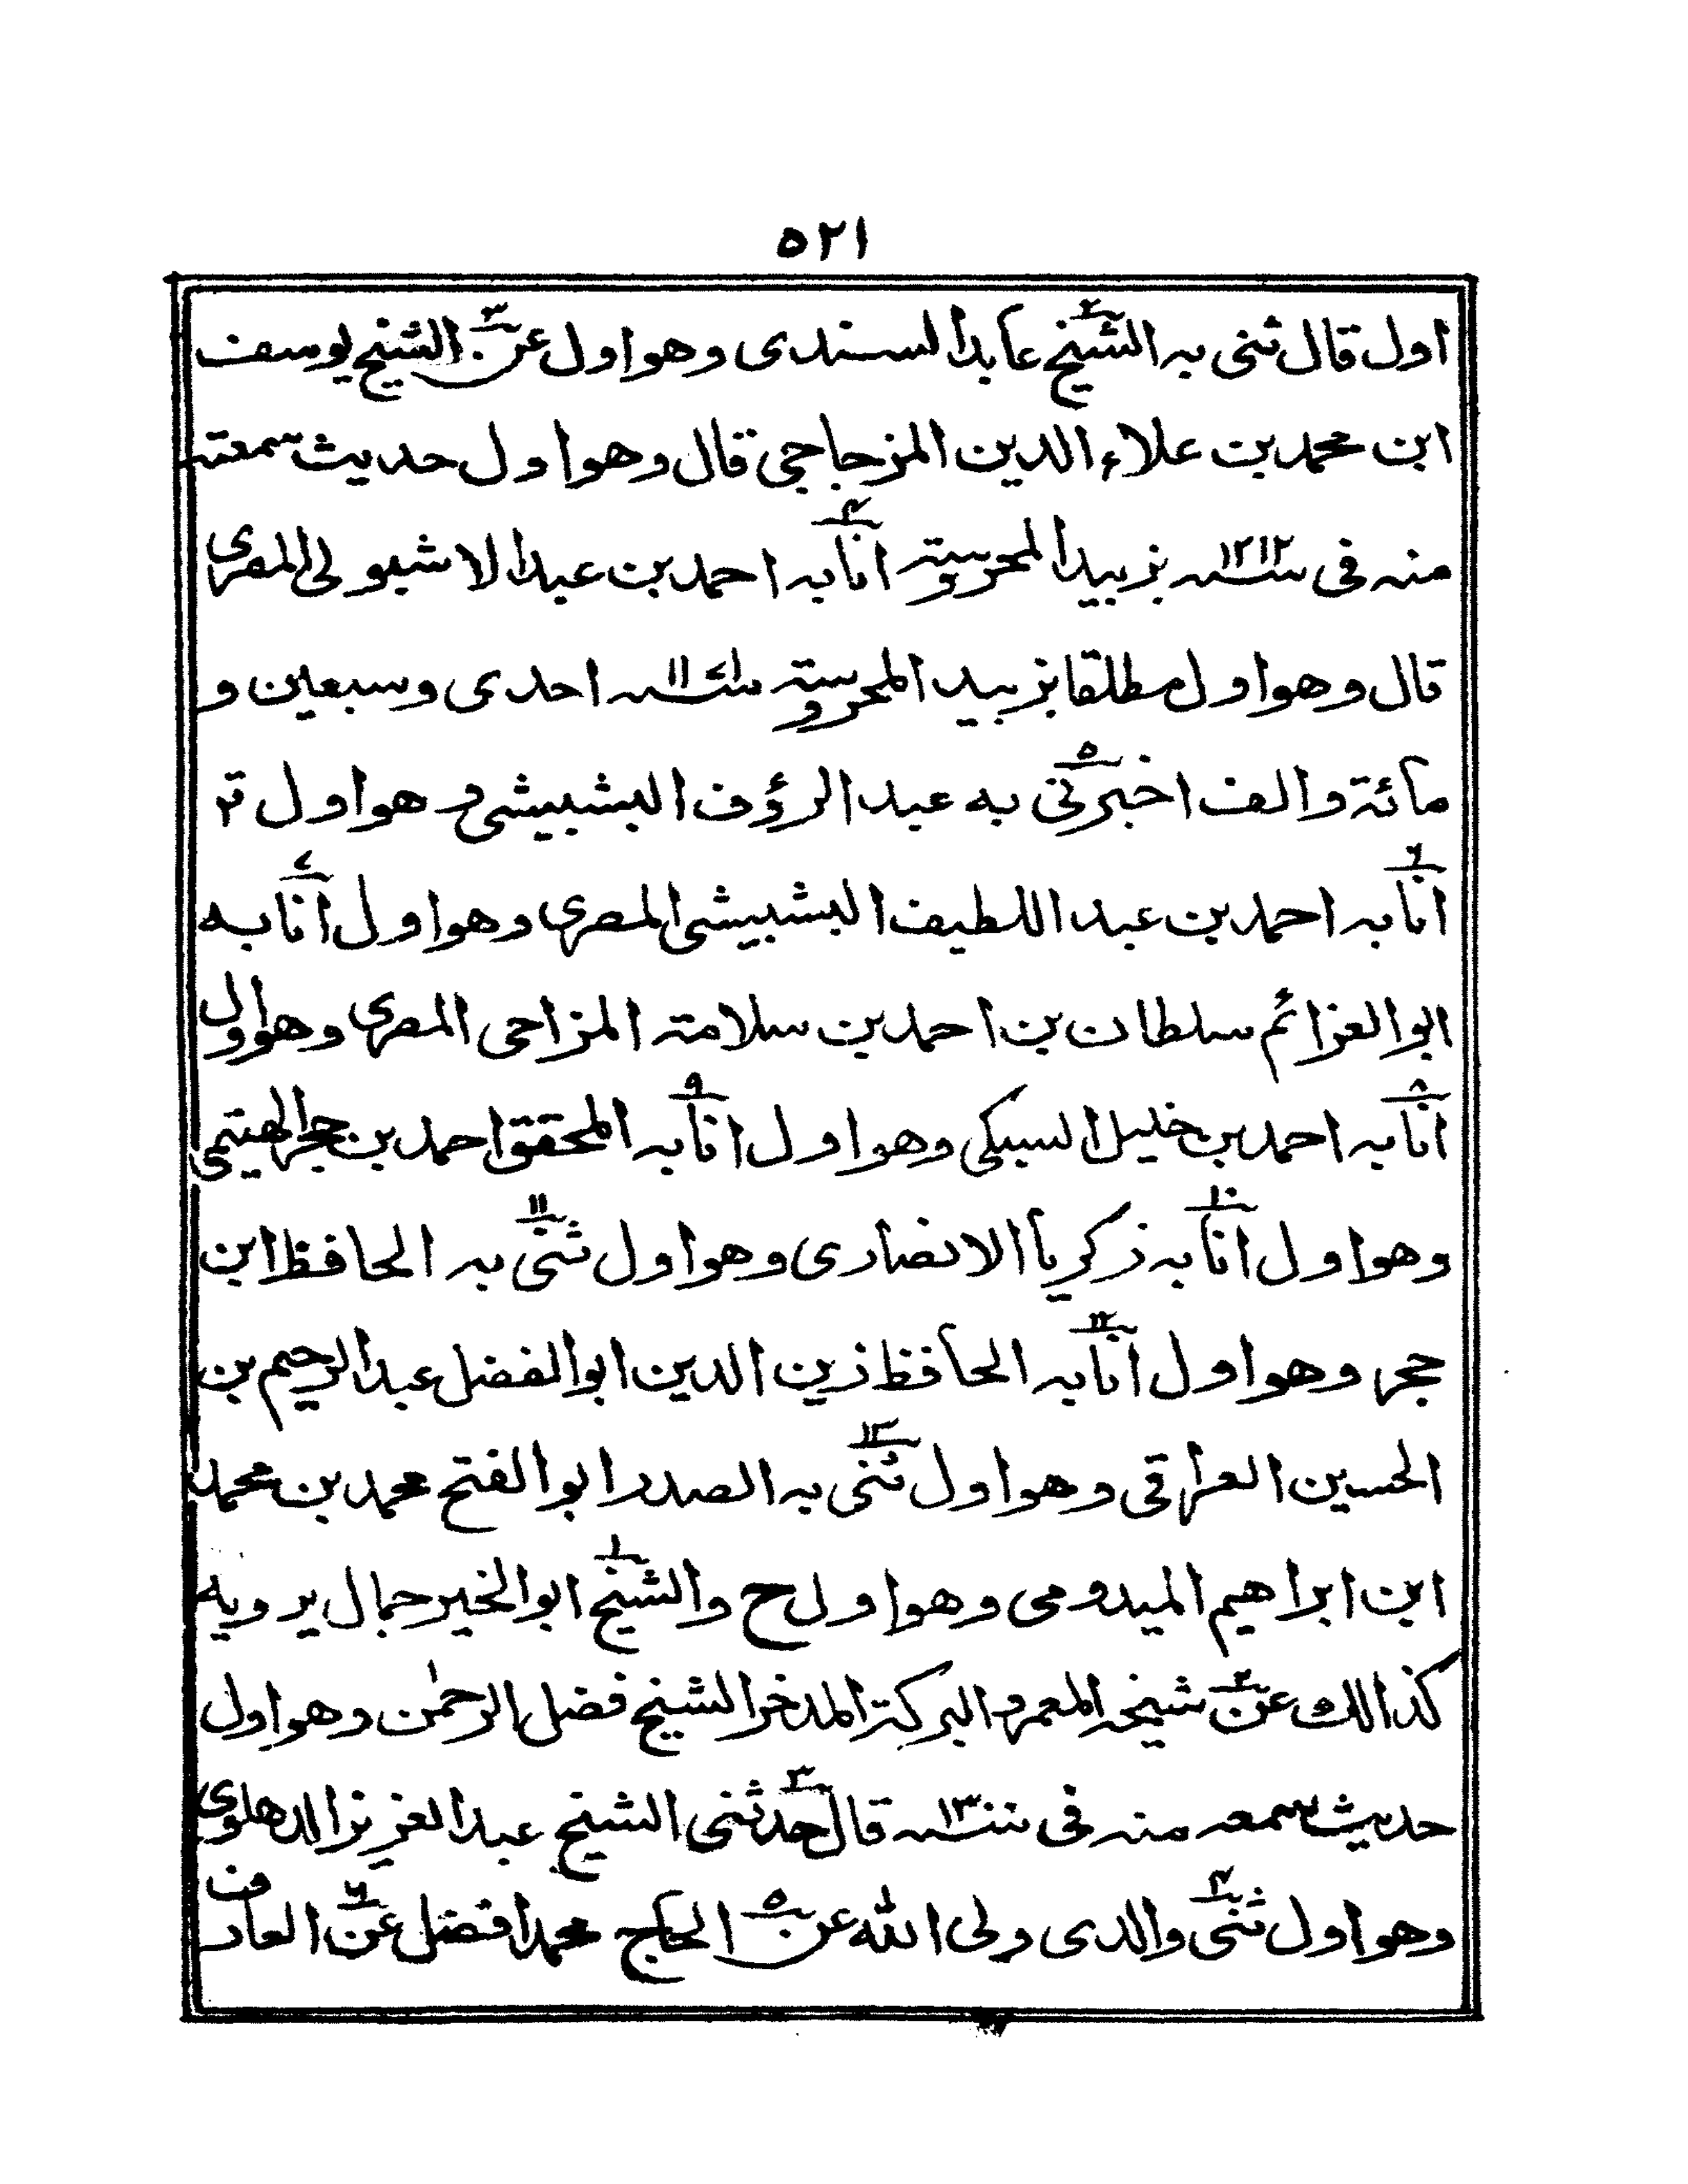 ٥٢١
اول قال ثنى به الشيخ٢ عابد السندى وهو اول عن٣ الشيخ يوسف
ابن محمد بن علاء الدين المزجاجى قال وهو اول حديث سمعته
منه فى سنه ١٢١٢ بزبيد المحروسة انا٤ به احمد بن عبد الاشبولى المصرى
قال وهو اول مطلقا بزبيد المحروسة سنه ١١٧١ احدى وسبعين و
مائة والف اخبرنى٥ به عبد الرؤف البشبيشى وهو اول
انا٦ به احمد بن عبد اللطيف البشبيشى المصرى وهو اول انا٧ به
ابو العزائم سلطان بن احمد بن سلامته المزاحى المصرى وهو اول
انا٨ به احمد بن خليل السبكى وهو اول انا٩ به المحقق احمد بن حجر الهيتمى
وهو اول انا١٠ به زكريا الانصارى وهو اول ثنى١١ به الحافظ ابن
حجر وهو اول انا١٢ به الحافظ زين الدين ابو الفضل عبد الرحيم بن
الحسين العراقى وهو اول ثنى١٣ به الصدر ابو الفتح محمد بن محمد
ابن ابراهيم الميدومى وهو اول ح والشيخ١ ابو الخير جمال يرويه
كذالك عن٢ شيخه المعمر والبركة المدخر الشيخ فضل الرحمٰن وهو اول
حديث سمعه منه فى سنه ١٣ قال حدثنى٣ الشيخ عبد العزيز الدهلوى
وهو اول ثنى٤ والدى ولى الله عن٥ الحاج محمد افضل عن٦ العارف